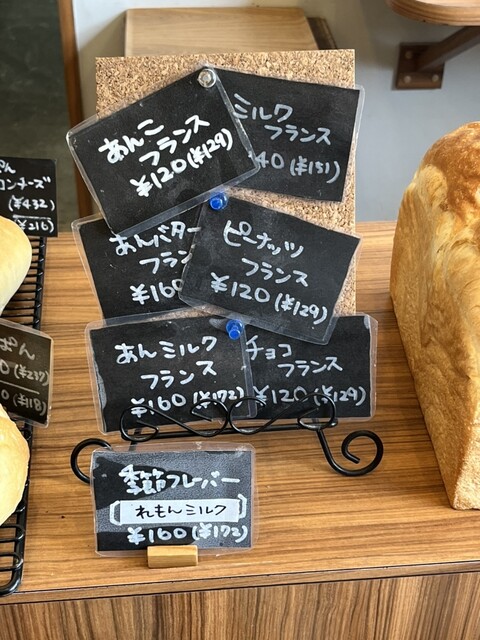 あんこ
フランス
¥120(¥129)
ミルク
フランス
40(¥151)
あんバター
フラン
¥160
ピーナッツ
フランス
¥120(¥129)
あんミルク
フランス
¥160(¥172)
チョコ
フランス
¥120(¥129)
季節フレーバー
れもんミルク
¥160(¥172)
ぱん
コンメーズ
(¥432)
(¥216)
ぱん
0(¥237)
0(¥118)